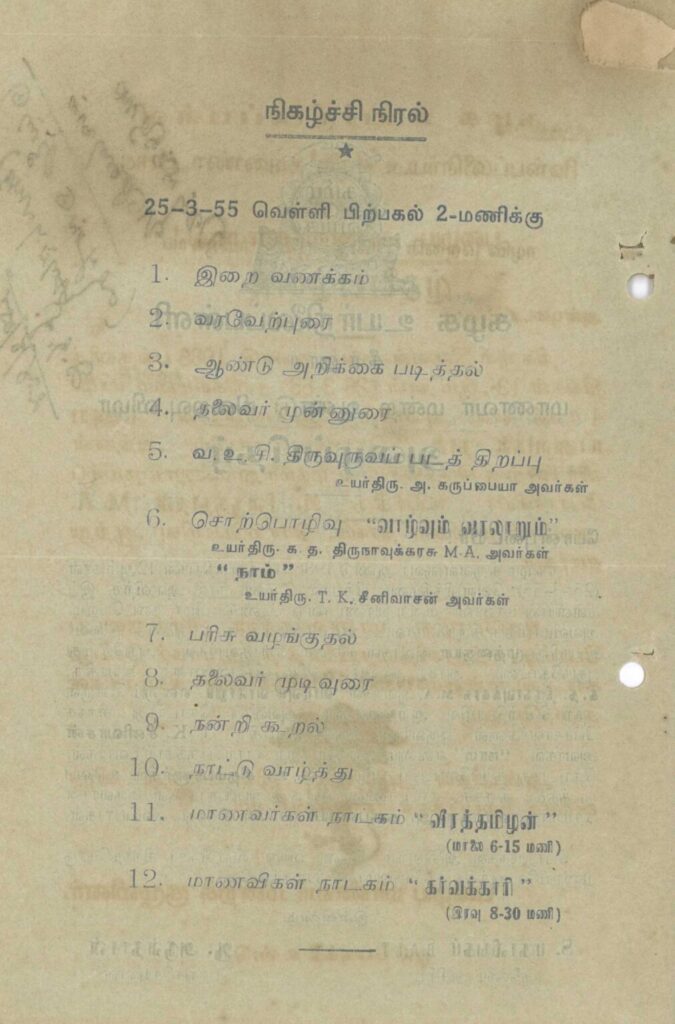 நிகழ்ச்சி நிரல்
25-3-55 வெள்ளி பிற்பகல் 2-மணிக்கு
1. இறை வணக்கம்
2. வரவேற்புரை
3. ஆண்டு அறிக்கை படித்தல்
4. தலைவர் முன்னுரை
5. வ. உ. சி. திருவுருவப் படத் திறப்பு
உயர்திரு. அ. கருப்பையா அவர்கள்
6. சொற்பொழிவு “வாழ்வும் வரலாறும்”
உயர்திரு. க. த. திருநாவுக்கரசு M.A. அவர்கள்
“ நாம் ”
உயர்திரு. T. K. சீனிவாசன் அவர்கள்
7. பரிசு வழங்குதல்
8. தலைவர் முடிவுரை
9. நன்றி கூறல்
10. நாட்டு வாழ்த்து
11. மாணவர்கள் நாடகம் “ வீரத்தமிழன் ”
(மாலை 6-15 மணி)
12. மாணவிகள் நாடகம் “ கர்வக்காரி ”
(இரவு 8-30 மணி)